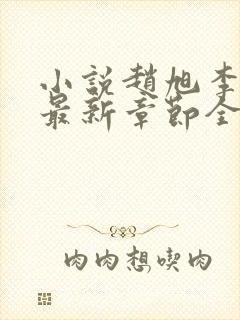 小説趙旭李
最新章節全
肉肉想喫肉